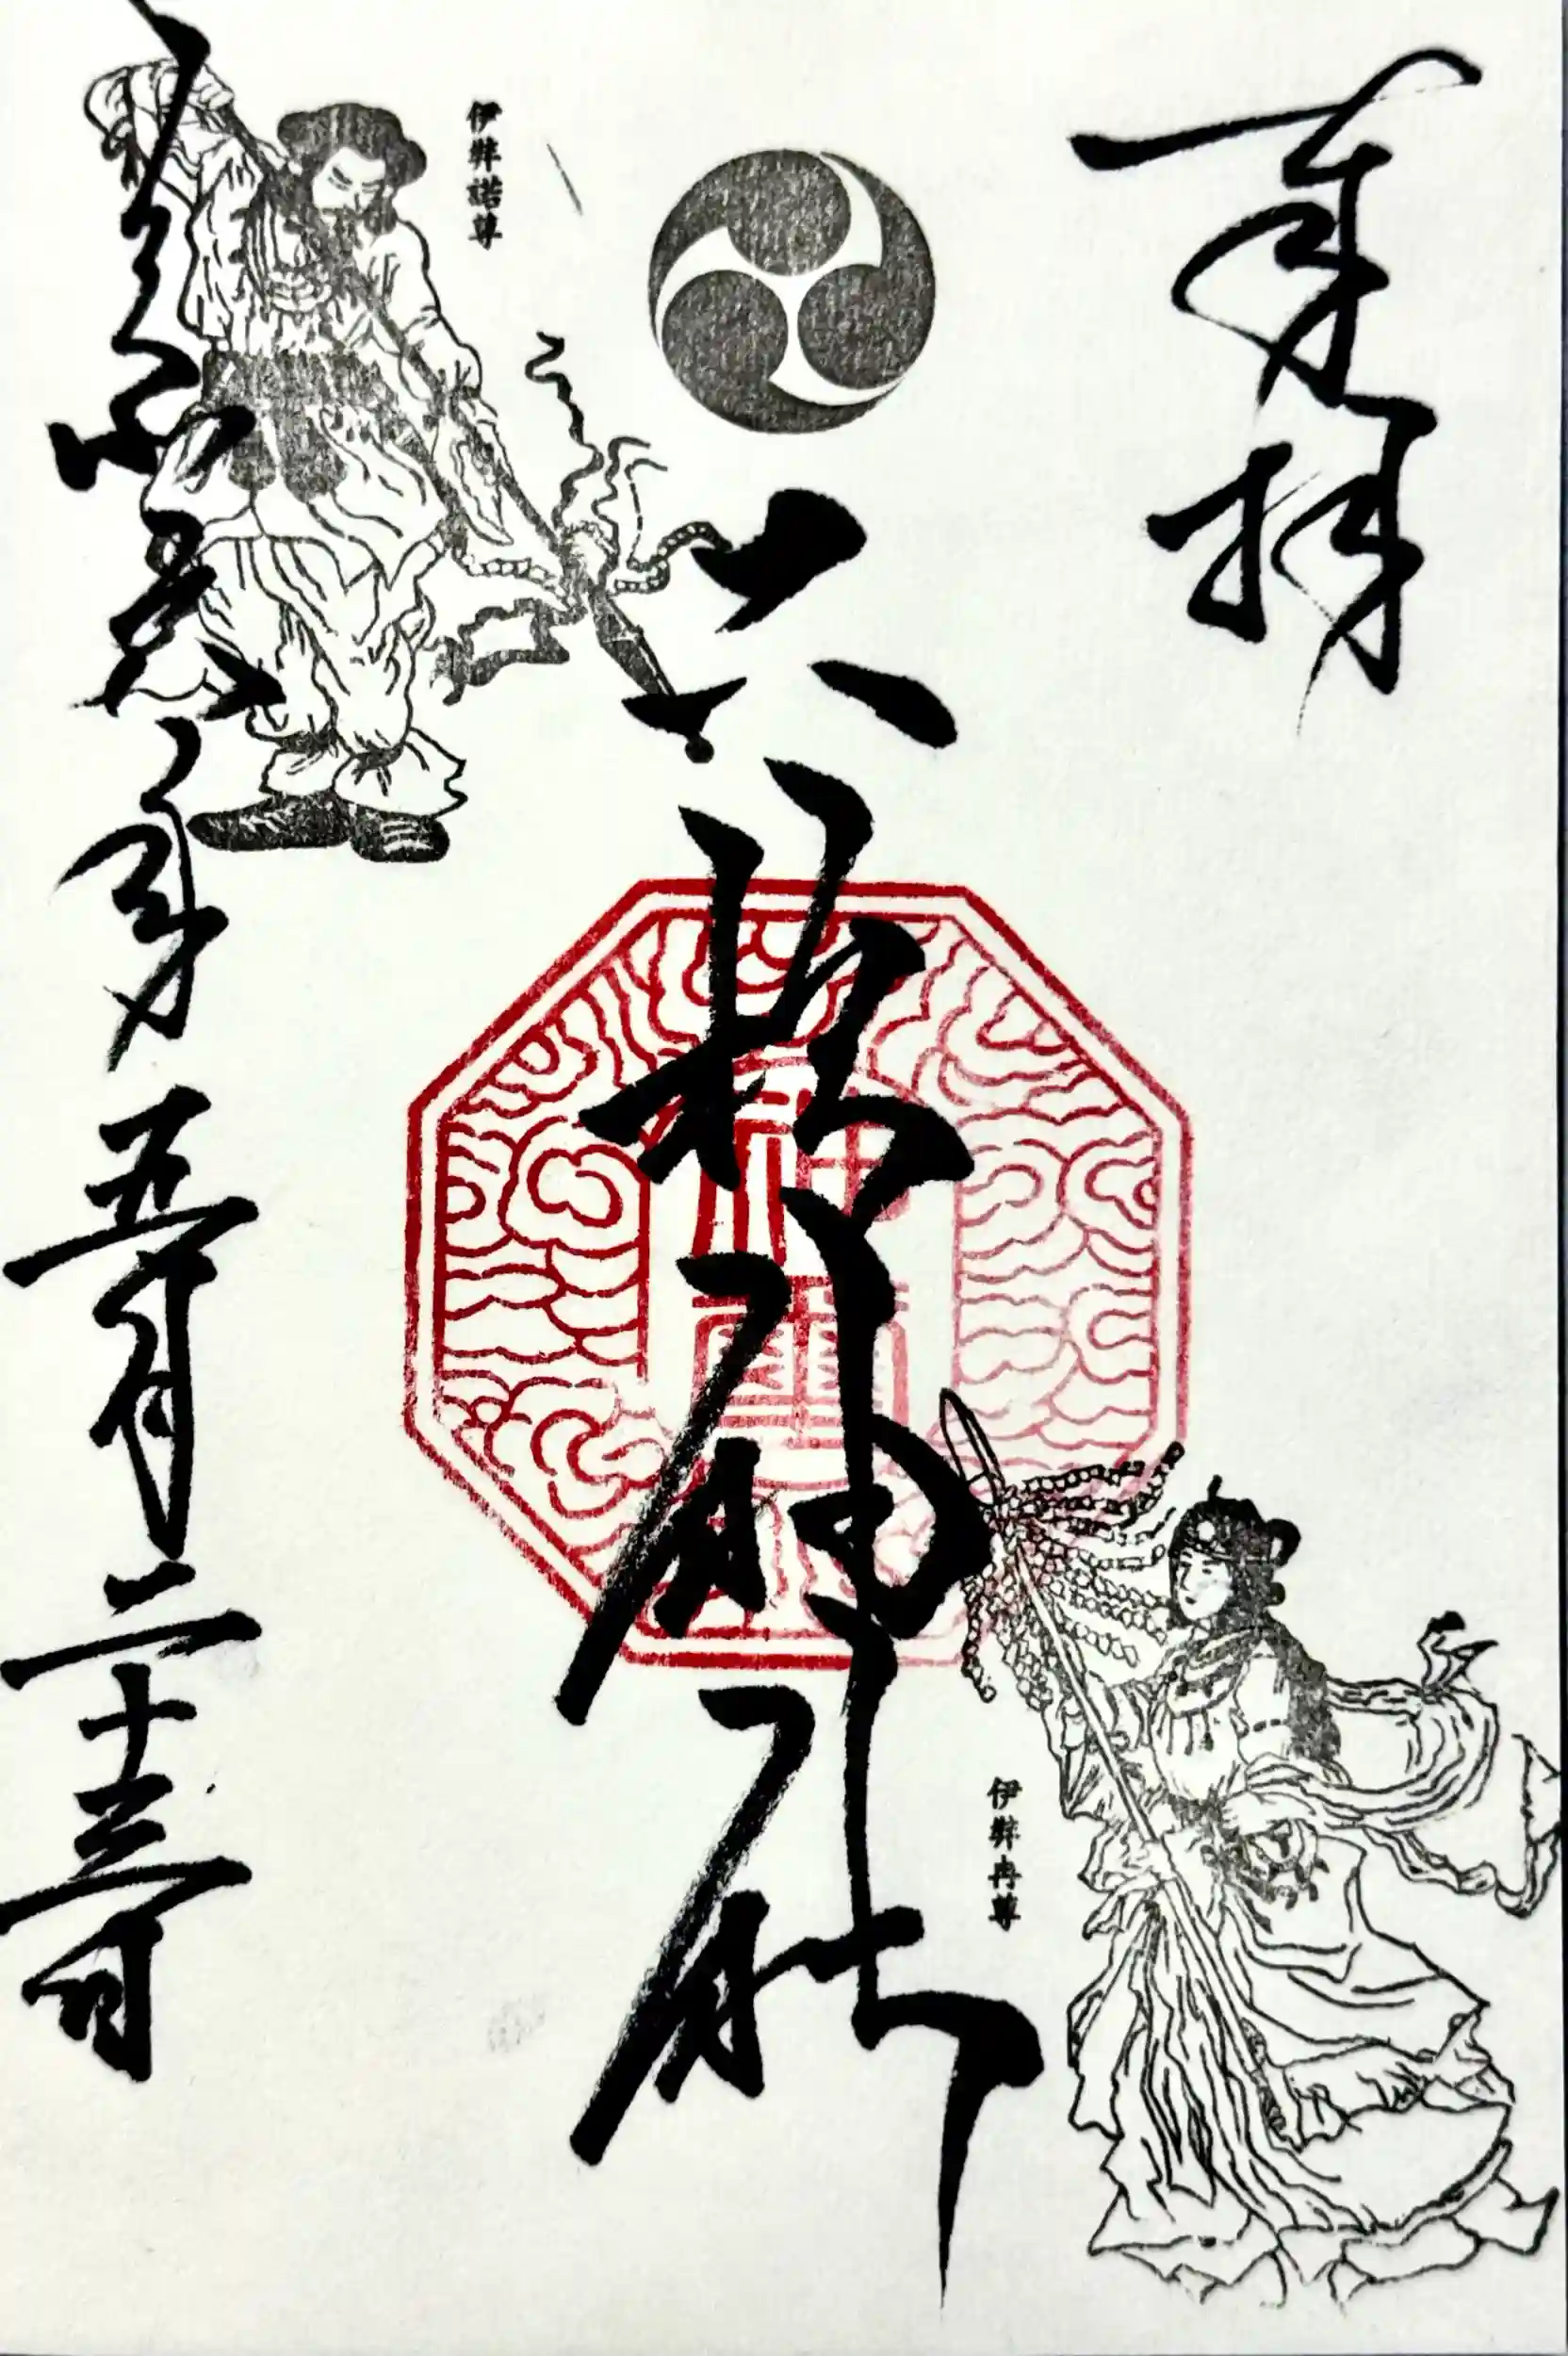 奉拝
伊弉諾尊
六所神社
神璽
伊弉冉尊
令和 年五月二十三日